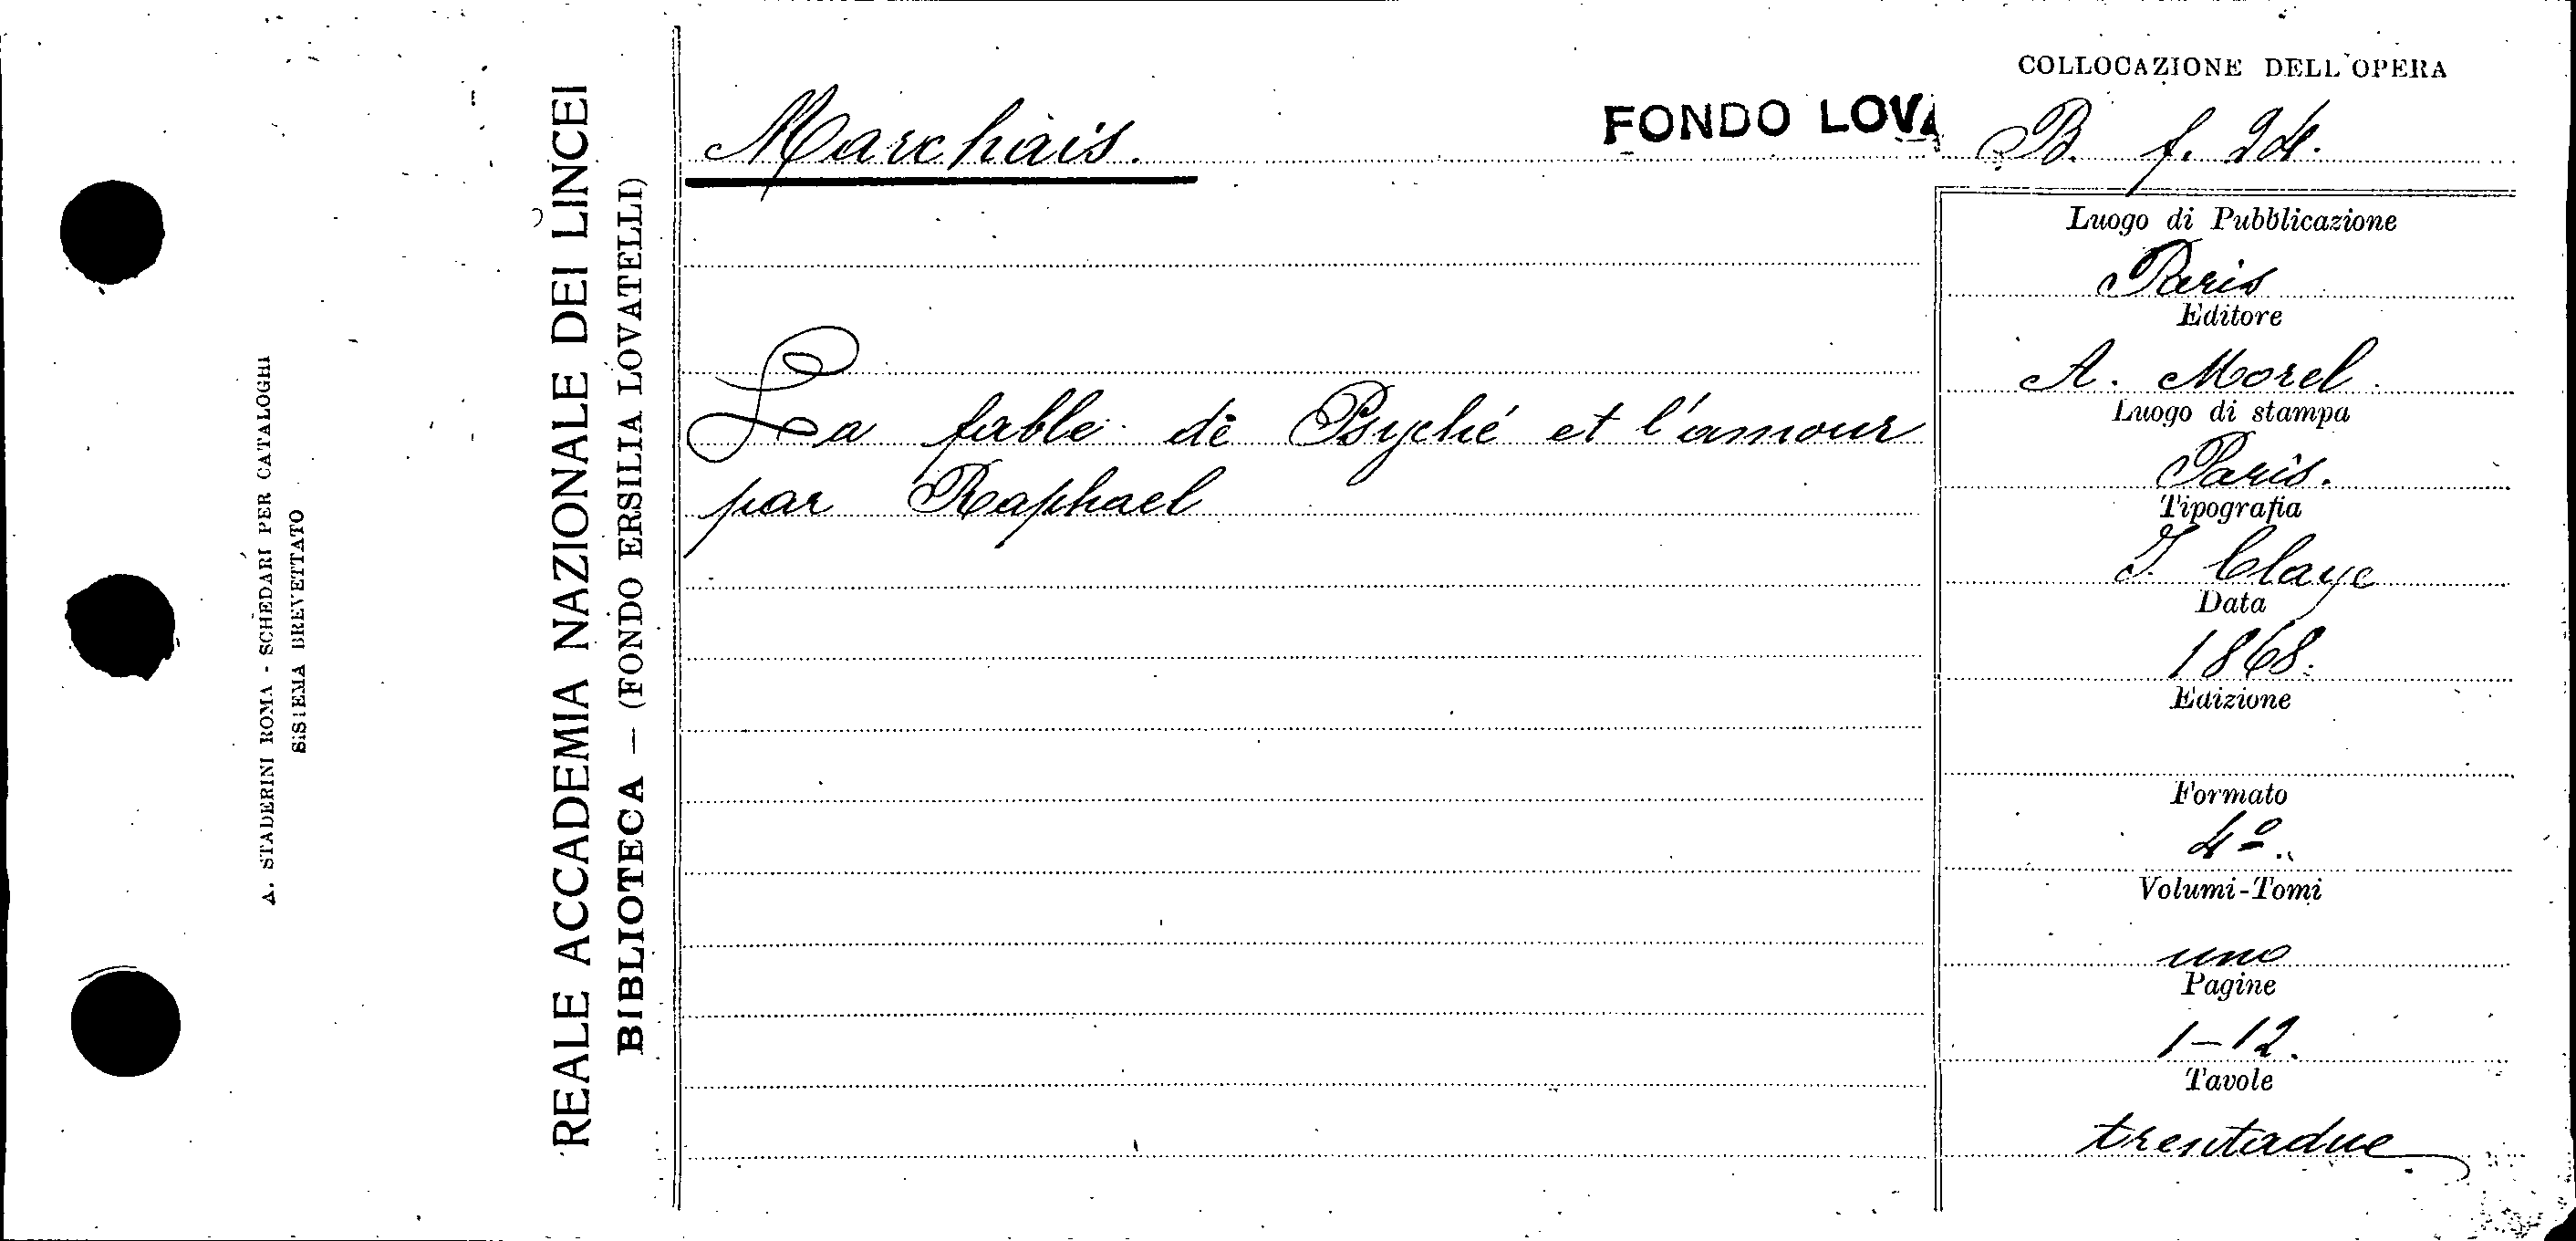 A. STADERINI ROMA - SCHEDARI PER CATALOGHI
SISTEMA BREVETTATO
REALE ACCADEMIA NAZIONALE DEI LINCEI
BIBLIOTECA — (FONDO ERSILIA LOVATELLI)
Marchais.
FONDO LOVA
La fable de Psyché et l'amour
par Raphael
COLLOCAZIONE DELL'OPERA
B. f. 24.
Luogo di Pubblicazione
Paris
Editore
A. Morel
Luogo di stampa
Paris.
Tipografia
J. Claye
Data
1868.
Edizione
Formato
4º.
Volumi-Tomi
uno
Pagine
1-12.
Tavole
trentadue